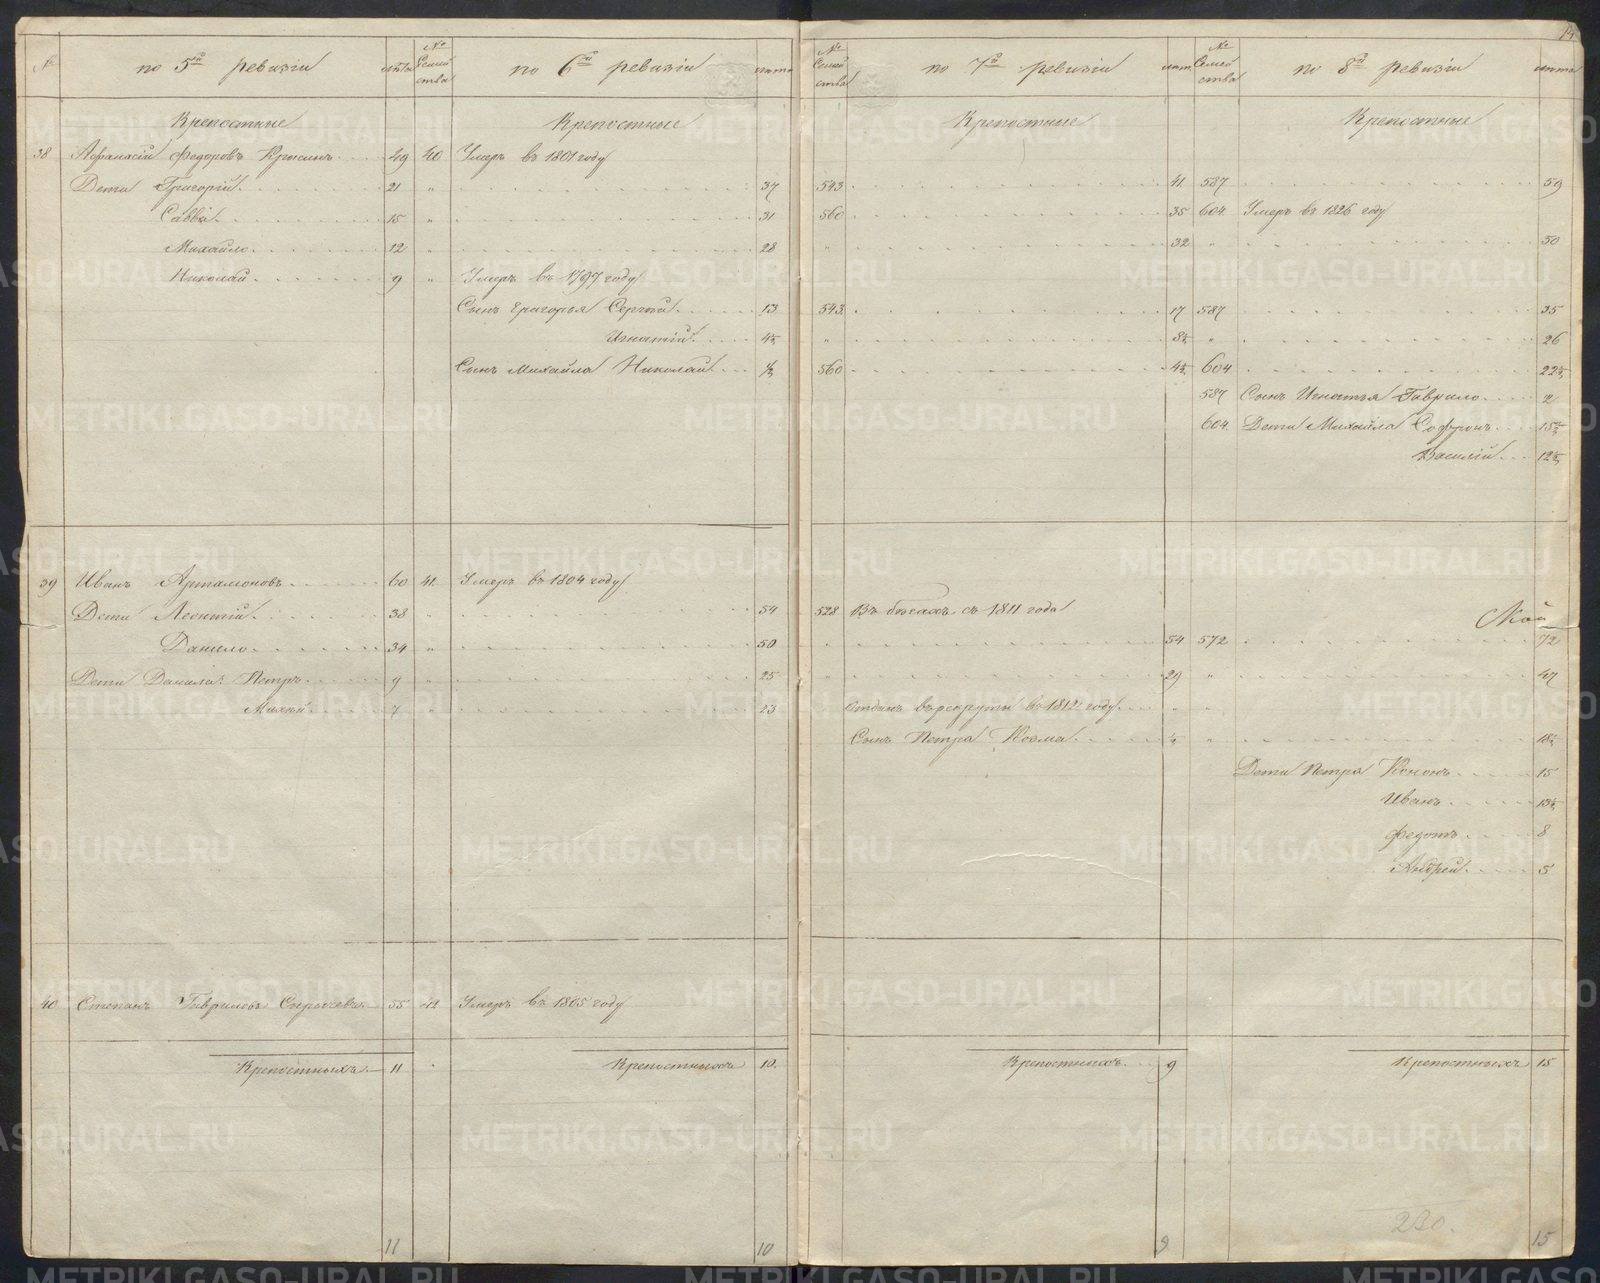 14
№ по 5й ревизіи лѣта № Семейства по 6й ревизіи лѣта № Семейства по 7й ревизіи лѣта № Семейства по 8й ревизіи лѣта
Крепостные Крепостные Крепостные Крепостные
38 Афанасій Федоровъ 49 40 Умеръ въ 1801 году
Дети Григорій 21 " 37 543 41 587 59
Савва 15 " 31 560 35 604 Умеръ въ 1826 году
Михайло 12 " 28 " 32 " 50
Николай 9 " Умеръ въ 1797 году
Сынъ Григорья Сергей 13 543 17 587 35
Игнатій 4½ " 8½ " 26
Сынъ Михайла Николай ½ 560 4½ 604 22½
587 Сынъ Игнатья Гаврило 2
604 Дети Михайла Софронъ 15½
Василій 12½
39 Иванъ Артамоновъ 60 41 Умеръ въ 1804 году
Дети Леонтій 38 " 54 528 Въ бегахъ съ 1811 года
Данило 34 " 50 " 54 572 72
Дети Данила: Петръ 9 " 25 " 29 " 47
Михей 7 " 23 Отданъ въ рекруты въ 1812 году " "
Сынъ Петра Козма ½ " 18½
Дети Петра Кононъ 15
Иванъ 13½
Федотъ 8
Андрей 5
40 Степанъ Гавриловъ Сырычевъ 55 42 Умеръ въ 1805 году
Крепостныхъ 11 Крепостныхъ 10 Крепостныхъ 9 Крепостныхъ 15
11 10 9 15
METRIKI.GASO-URAL.RU